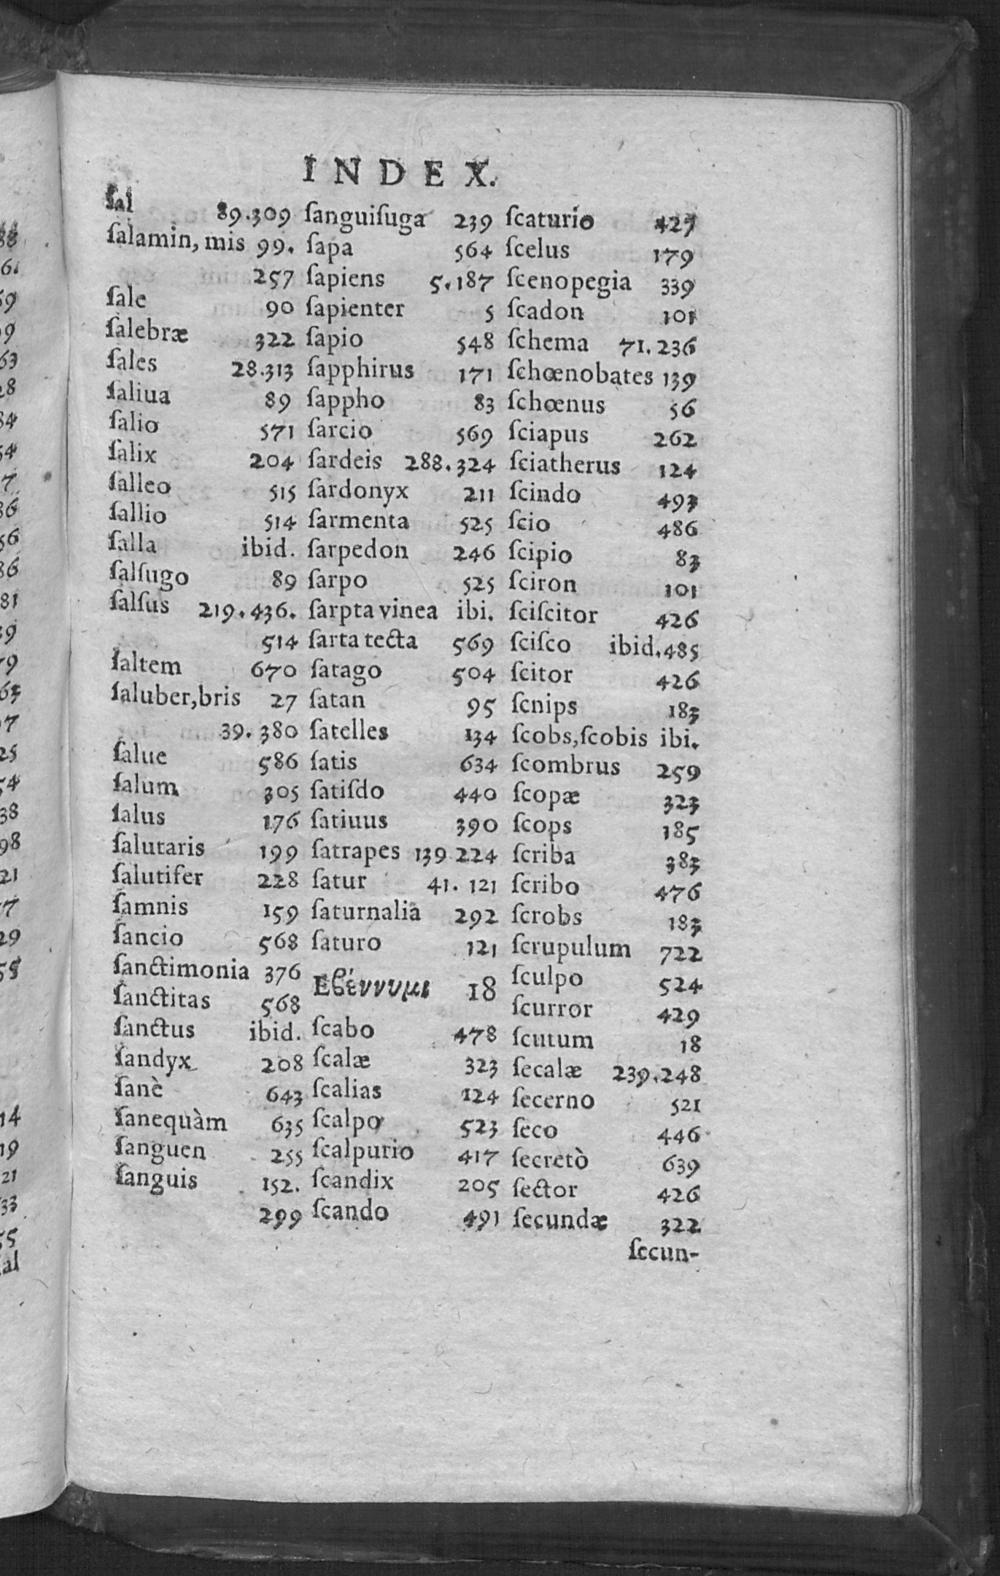 INDEX.
ſal 89.309
ſalamin, mis 99.
257
ſale 90
ſalebræ 322
ſales 28.313
ſaliua 89
ſalio 571
ſalix 204
ſalleo 515
ſallio 514
ſalla ibid.
ſalſugo 89
ſalſus 219.436.
514
ſaltem 670
ſaluber,bris 27
39.380
ſalue 586
ſalum 305
ſalus 176
ſalutaris 199
ſalutifer 228
ſamnis 159
ſancio 568
ſanctimonia 376
ſanctitas 568
ſanctus ibid.
ſandyx 208
ſanè 643
ſanequàm 635
ſanguen 255
ſanguis 152.
299
ſanguiſuga 239
ſapa 564
ſapiens 5.187
ſapienter 5
ſapio 548
ſapphirus 171
ſappho 83
ſarcio 569
ſardeis 288.324
ſardonyx 211
ſarmenta 525
ſarpedon 246
ſarpo 525
ſarpta vinea ibi.
ſarta tecta 569
ſatago 504
ſatan 95
ſatelles 134
ſatis 634
ſatiſdo 440
ſatiuus 390
ſatrapes 139 224
ſatur 41. 121
ſaturnalia 292
ſaturo 121
18
ſcabo 478
ſcalæ 323
ſcalias 124
ſcalpo 523
ſcalpurio 417
ſcandix 205
ſcando 491
ſcaturio 427
ſcelus 179
ſcenopegia 339
ſcadon 101
ſchema 71.236
ſchœnobates 139
ſchœnus 56
ſciapus 262
ſciatherus 124
ſcindo 493
ſcio 486
ſcipio 83
ſciron 101
ſciſcitor 426
ſciſco ibid.485
ſcitor 426
ſcnips 183
ſcobs,ſcobis ibi.
ſcombrus 259
ſcopæ 323
ſcops 185
ſcriba 383
ſcribo 476
ſcrobs 183
ſcrupulum 722
ſculpo 524
ſcurror 429
ſcutum 18
ſecalæ 239.248
ſecerno 521
ſeco 446
ſecretò 639
ſector 426
ſecundæ 322
ſecun-